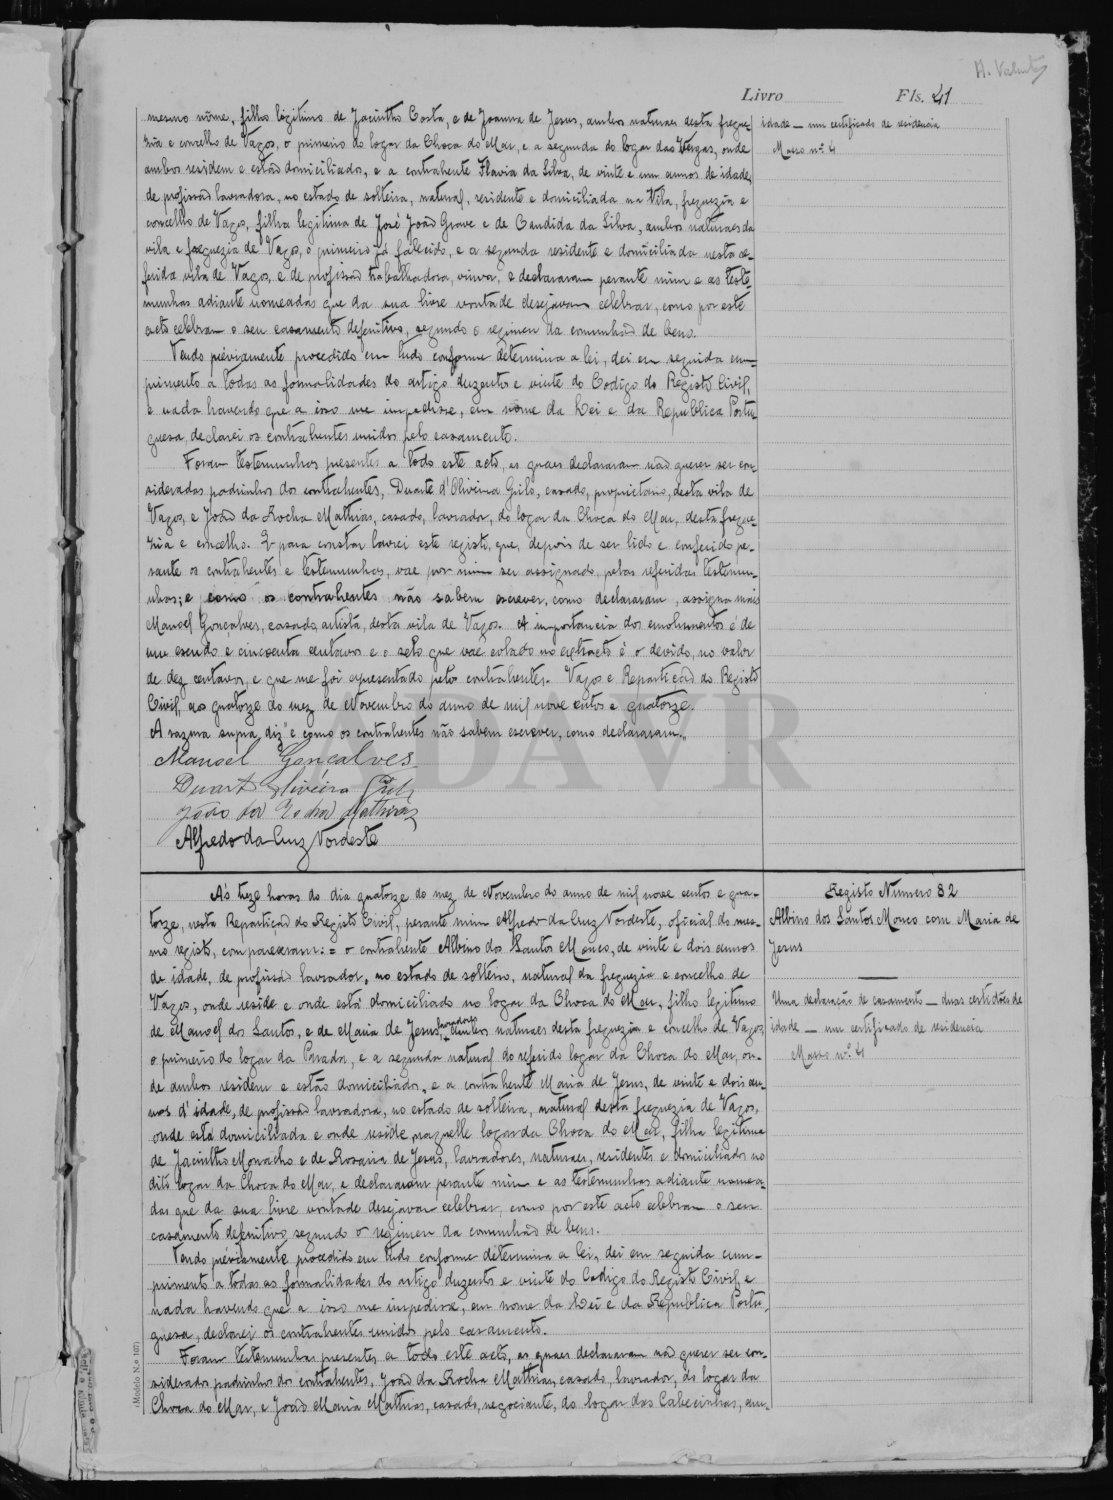 H. Valente
Livro Fls. 41
mesmo nôme, filho legitimo de Jacintho Costa, e de Joanna de Jesus, ambos naturaes desta fregue-
zia e concelho de Vagos, o primeiro do logar da Choca do Mar, e a segunda do logar das Vergas, onde
ambos residem e estão domiciliados, e a contrahente Flavia da Silva, de vinte e um annos de idade,
de profissão lavradora, no estado de solteira, natural, residente e domiciliada na Vila, freguezia e
concelho de Vagos, filha legitima de José João Grave e de Candida da Silva, ambos naturaes da
vila e freguezia de Vagos, o primeiro já falecido, e a segunda residente e domiciliada nesta re-
ferida vila de Vagos, e de profissão trabalhadora, viuva, e declararam perante mim e as teste-
munhas adiante nomeadas que da sua livre vontade desejavam celebrar, como por este
acto celebram o seu casamento definitivo, segundo o regimen da comunhão de bens.
Tendo préviamente procedido em tudo conforme determina a lei, dei em seguida cum-
primento a todas as formalidades do artigo duzentos e vinte do Codigo do Registo Civil,
e nada havendo que a isso me impedisse, em nome da Lei e da Republica Portu-
guesa, declarei os contrahentes unidos pelo casamento.
Foram testemunhas presentes a todo este acto, as quaes declararam não querer ser con-
sideradas padrinhos dos contrahentes, Duarte d'Oliveira Grilo, casado, proprietario, desta vila de
Vagos, e João da Rocha Mathias, casado, lavrador, do logar da Choca do Mar, desta fregue-
zia e concelho. E para constar lavrei este registo, que, depois de ser lido e conferido pe-
rante os contrahentes e testemunhas, vae por mim ser assignado, pelas referidas testemu-
nhas; e como os contrahentes não sabem escrever, como declararam, assigna mais
Manoel Gonçalves, casado, artista, desta vila de Vagos. A importancia dos emolumentos é de
um escudo e cincoenta centavos e o selo que vae colado no extracto é o devido, no valor
de dez centavos, e que me foi apresentado pelos contrahentes. Vagos e Repartição do Registo
Civil, aos quatorze do mez de Novembro do anno de mil nove centos e quatorze.
A razura supra, diz "e como os contrahentes não sabem escrever, como declararam".
Manoel Gonçalves
Duarte Oliveira Grilo
João da Rocha Mathias
Alfredo da Cruz Nordeste
idade — um certificado de residencia
Masso nº 4
ADAVR
Ás treze horas do dia quatorze do mez de Novembro do anno de mil nove centos e qua-
torze, nesta Repartição do Registo Civil, perante mim Alfredo da Cruz Nordeste, oficial do mes-
mo registo, compareceram: = o contrahente Albino dos Santos Mouco, de vinte e dois annos
de idade, de profissão lavrador, no estado de solteiro, natural da freguezia e concelho de
Vagos, onde reside e onde está domiciliado no logar da Choca do Mar, filho legitimo
de Manoel dos Santos, e de Maria de Jesus, lavradores, ambos naturaes desta freguezia e concelho de Vagos,
o primeiro do logar da Parada, e a segunda natural do referido logar da Choca do Mar, on-
de ambos residem e estão domiciliados, e a contrahente Maria de Jesus, de vinte e dois an-
nos d'idade, de profissão lavradora, no estado de solteira, natural desta freguezia de Vagos,
onde está domiciliada e onde reside, naquelle logar da Choca do Mar, filha legitima
de Jacintho Monacho e de Rosaria de Jesus, lavradores, naturaes, residentes e domiciliados no
dito logar da Choca do Mar, e declararam perante mim e as testemunhas adiante nomea-
das que da sua livre vontade desejavam celebrar, como por este acto celebram o seu
casamento definitivo, segundo o regimen da comunhão de bens.
Tendo préviamente procedido em tudo conforme determina a lei, dei em seguida cum-
primento a todas as formalidades do artigo duzentos e vinte do Codigo do Registo Civil, e
nada havendo que a isso me impedisse, em nome da Lei e da Republica Portu-
guesa, declarei os contrahentes unidos pelo casamento.
Foram testemunhas presentes a todo este acto, as quaes declararam não querer ser con-
siderados padrinhos dos contrahentes, João da Rocha Mathias, casado, lavrador, do logar da
Choca do Mar, e João Maria Mathias, casado, negociante, do logar das Cabecinhas, am-
Registo Numero 82
Albino dos Santos Mouco com Maria de
Jesus
Uma declaração de casamento — duas certidões de
idade — um certificado de residencia
Masso nº 4
(Modelo N.º 107)